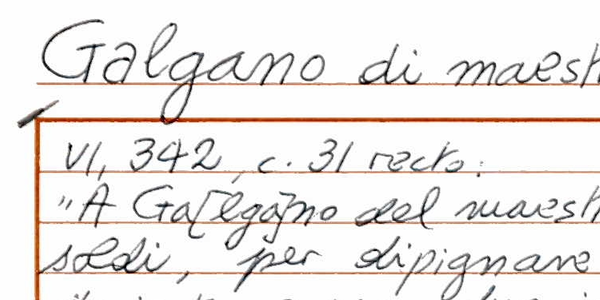 Galgano di maest
VI, 342, c. 31 recto:
"A Ga[lga]no del maest
soldi, per dipignare